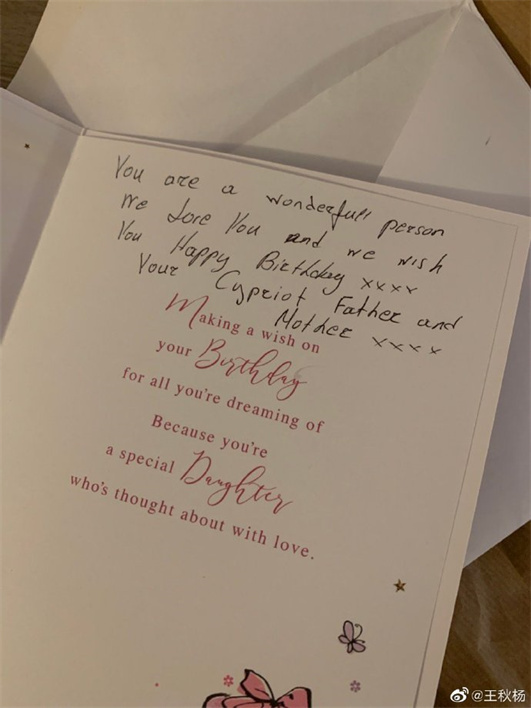 You are a wonderfull person
We Love You and we wish
You Happy Birthday xxxx
Your Cypriot Father and
Mother xxxx
Making a wish on
your Birthday
for all you're dreaming of
Because you're
a special Daughter
who's thought about with love.
@王秋杨